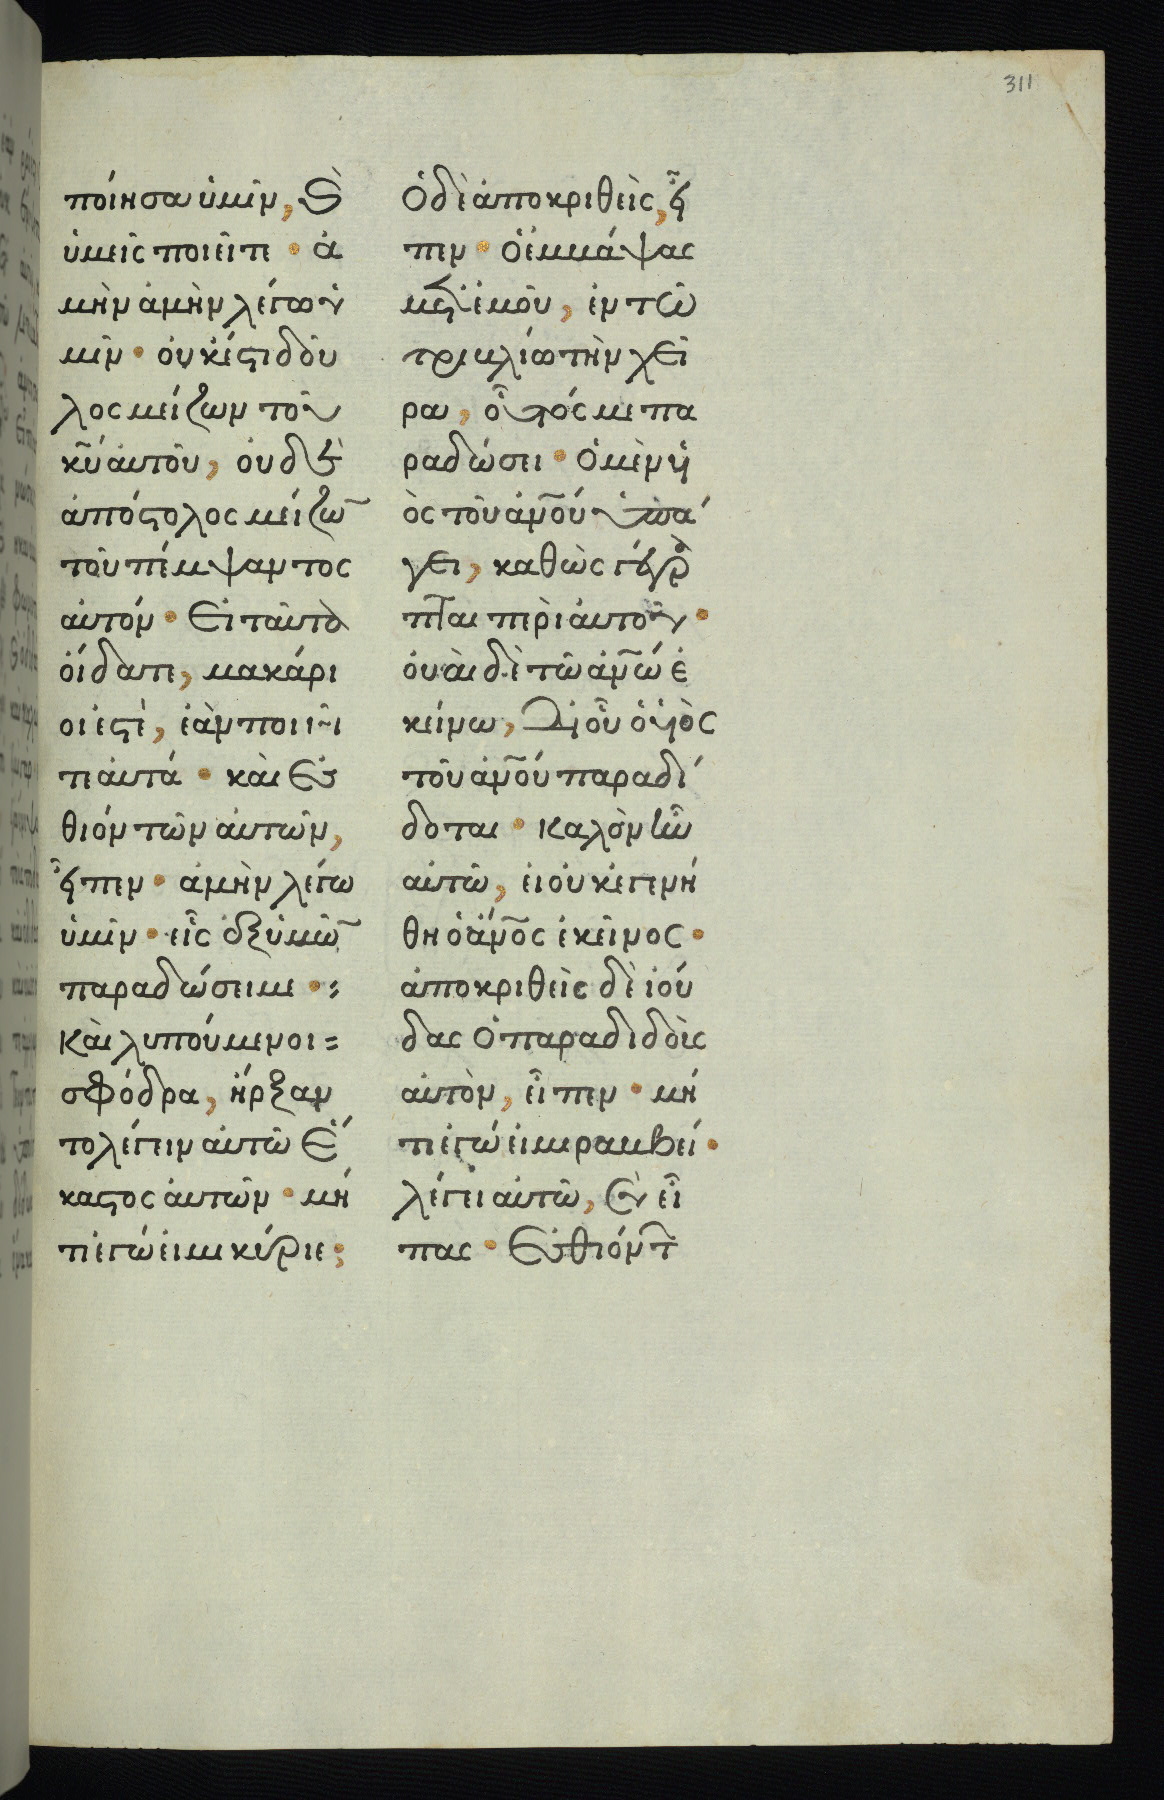 311
ποίησα ὑμῖν, καὶ
ὑμεῖς ποιεῖτε · ἀ
μὴν ἀμὴν λέγω ὑ
μῖν · οὐκ ἔστι δοῦ
λος μείζων τοῦ
κ̅υ̅ αὐτοῦ, οὐδὲ
ἀπόστολος μείζω̅
τοῦ πέμψαντος
αὐτόν · Εἰ ταῦτα
οἴδατε, μακάρι
οι ἐστὲ, ἐὰν ποιῆ
τε αὐτά · καὶ ἐσ
θιόντων αὐτῶν,
εἶπεν · ἀμὴν λέγω
ὑμῖν · εἷς ἐξ ὑμῶ̅
παραδώσει με ·:
Καὶ λυπούμενοι =
σφόδρα, ἤρξαν
το λέγειν αὐτῶ ἕ
καστος αὐτῶν · μή
τι ἐγώ εἰμι κύριε;
Ὁ δὲ ἀποκριθεὶς, εἶ
πεν · ὁ ἐμβάψας
μετ' ἐμοῦ, ἐν τῶ
τρυβλίω τὴν χεῖ
ρα, οὗτός με πα
ραδώσει · Ὁ μὲν ὑι
ὸς τοῦ ἀ̅ν̅ο̅υ̅ ὑπά
γει, καθὼς γέγρα
πται περὶ αὐτοῦ ·
οὐαὶ δὲ τῶ ἀ̅ν̅ω̅ ἐ
κείνω, δι' οὗ ὁ υἱὸς
τοῦ ἀ̅ν̅ο̅υ̅ παραδί
δοται · Καλὸν ἦν
αὐτῶ, εἰ οὐκ ἐγενή
θη ὁ ἄ̅ν̅ο̅ς̅ ἐκεῖνος ·
ἀποκριθεὶς δὲ ἰού
δας ὁ παραδιδοὺς
αὐτὸν, εἶπεν · μή
τι ἐγώ εἰμι ραββεί ·
λέγει αὐτῶ, σὺ εἶ
πας · Ἐσθιόντ